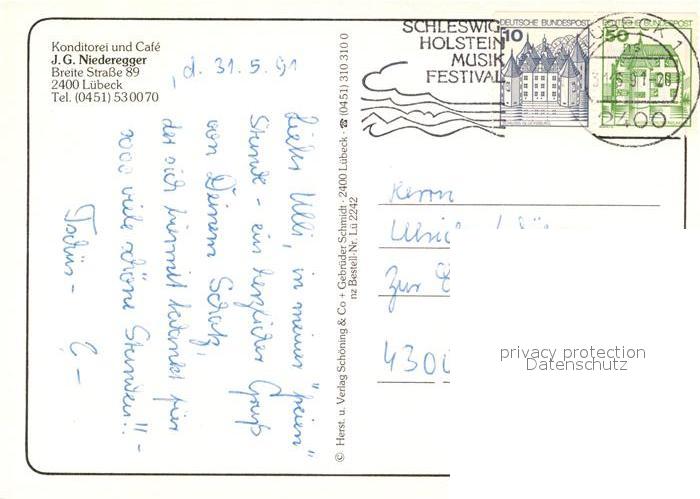 Konditorei und Café
J. G. Niederegger
Breite Straße 89
2400 Lübeck
Tel. (0451) 530070
d. 31.5.91
Liebe Ulli, in meiner "freien"
Stunde - ein herzlicher Gruß
von Deinem Schatz,
der sich hiermit bedankt für
1000 viele schöne Stunden!! -
Tschüs-
© Herst. u. Verlag Schöning & Co + Gebrüder Schmidt · 2400 Lübeck · ☎ (0451) 310 310 0
nz Bestell-Nr. Lü 2242
SCHLESWIG
HOLSTEIN
MUSIK
FESTIVAL
DEUTSCHE BUNDESPOST
10
DEUTSCHE BUNDESPOST
50
2400
Herrn
Ulric
Zur
430
privacy protection
Datenschutz